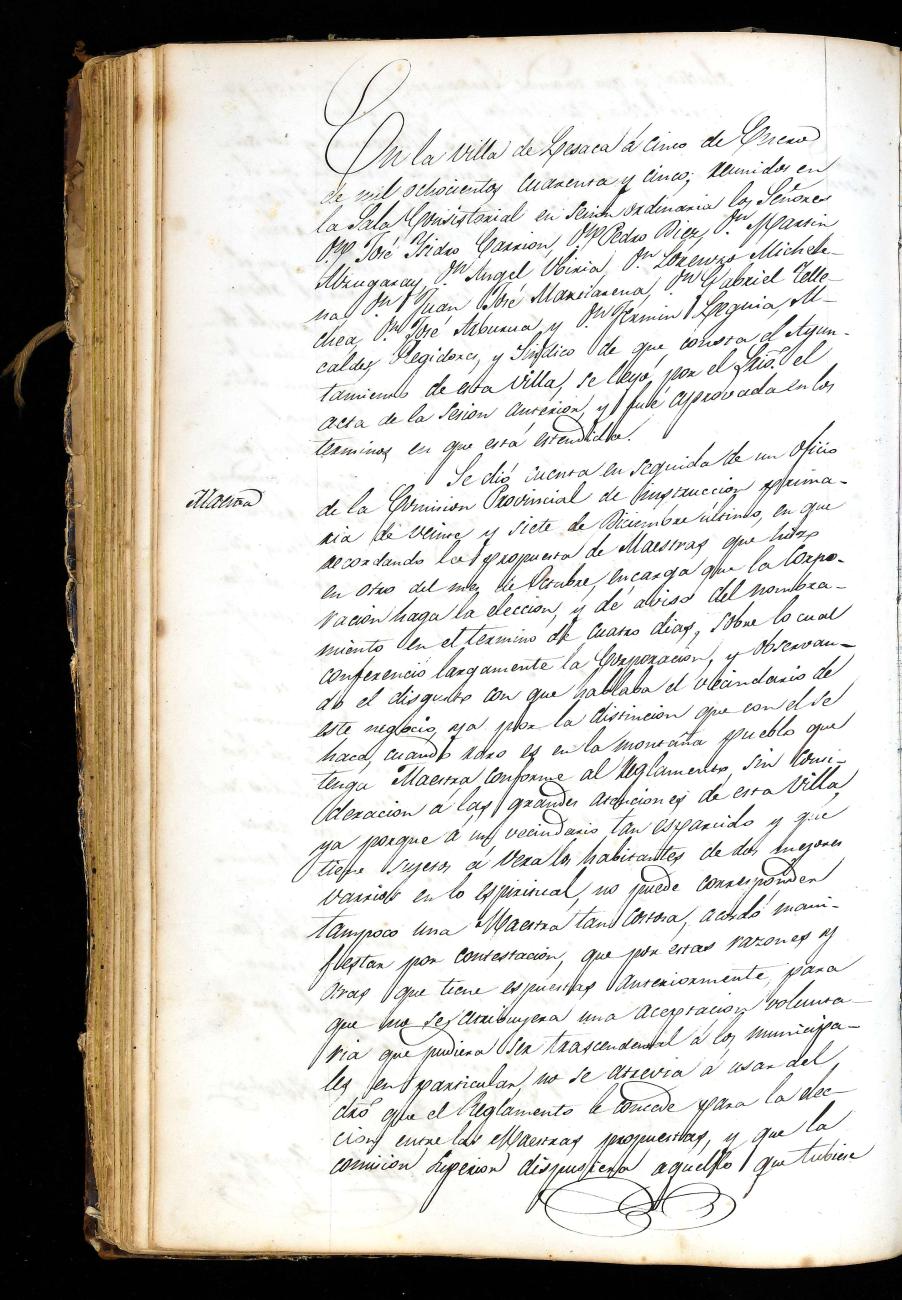 En la villa de Lesaca á cinco de Enero
de mil ochocientos cuarenta y cinco, reunidos en
la Sala Consistorial en sesion ordinaria los Señores
Dn José Ysidro Carrion, Dn Pedro Diez, Dn Martin
Mzugaray, Dn Angel Yriria, Dn Lorenzo Michele-
na Dn Juan José Marziarena, Dn Gabriel Telle-
chea, Dn José Arburua, y Dn Fermin Leguia, Al-
caldes, Regidores, y Síndico de que consta el Ayun-
tamiento de esta Villa, se leyó por el Srio. el
acta de la sesion anterior, y fué aprovada en los
terminos en que está estendida.
Se dió cuenta en seguida de un oficio
Maestra
de la Comision Provincial de instruccion prima-
ria de veinte y siete de Diciembre ultimo, en que
recordando la propuesta de Maestras que hizo
en otro del mes de Octubre, encarga que la Corpo-
racion haga la eleccion, y dé aviso del nombra-
miento en el termino de cuatro dias; sobre lo cual
conferenció largamente la Corporacion, y observan-
do el disgusto con que hablaba el vecindario de
este negocio, ya por la distincion que con el se
hace, cuando raro es en la montaña pueblo que
tenga Maestra conforme al Reglamento, sin consi-
deracion á las grandes atenciones de esta Villa,
ya porque á un vecindario tan esparcido y que
tiene sujetos á Vera los habitantes de dos mejores
varrios en lo espiritual, no puede corresponder
tampoco una Maestra tan costosa, acordó mani-
fiestar por contestacion, que por estas razones y
otras que tiene espuestas anteriormente, para
que no se atribuyera una aceptacion volunta-
ria que pudiera ser trascendental á los municipa-
les en particular, no se atrevia á usar del
dro que el Reglamento le concede para la elec-
cion entre las Maestras propuestas, y que la
comision Superior dispusiera aquello que tubiere